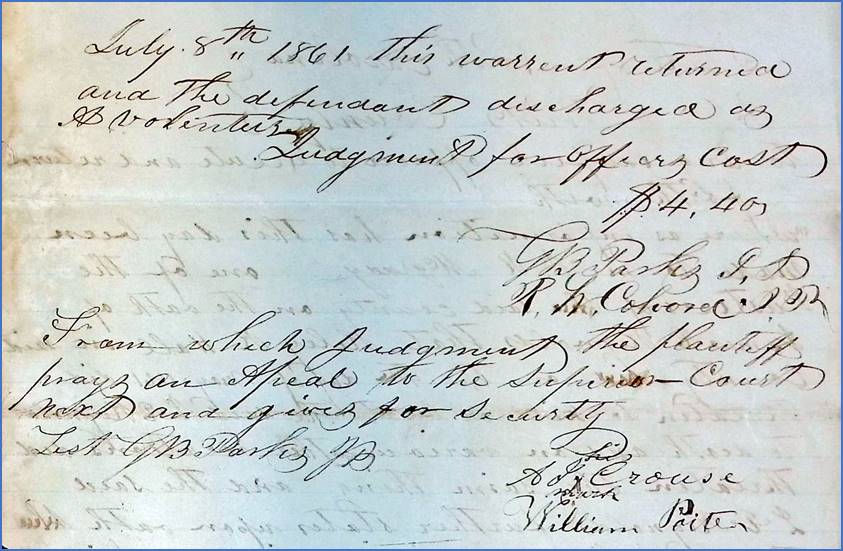 July. 8th 1861 this warrent returned
and the defendant discharged as
A volenteer
Judgment for officers Cost
$4,40
GB, Parks J, P
R, W, Colvord J P
From which Judgment the plantiff
prays an Apeal to the Superior Court
next and gives for Security
Test GB Parks JP.
his
A J Crouse
mark
William